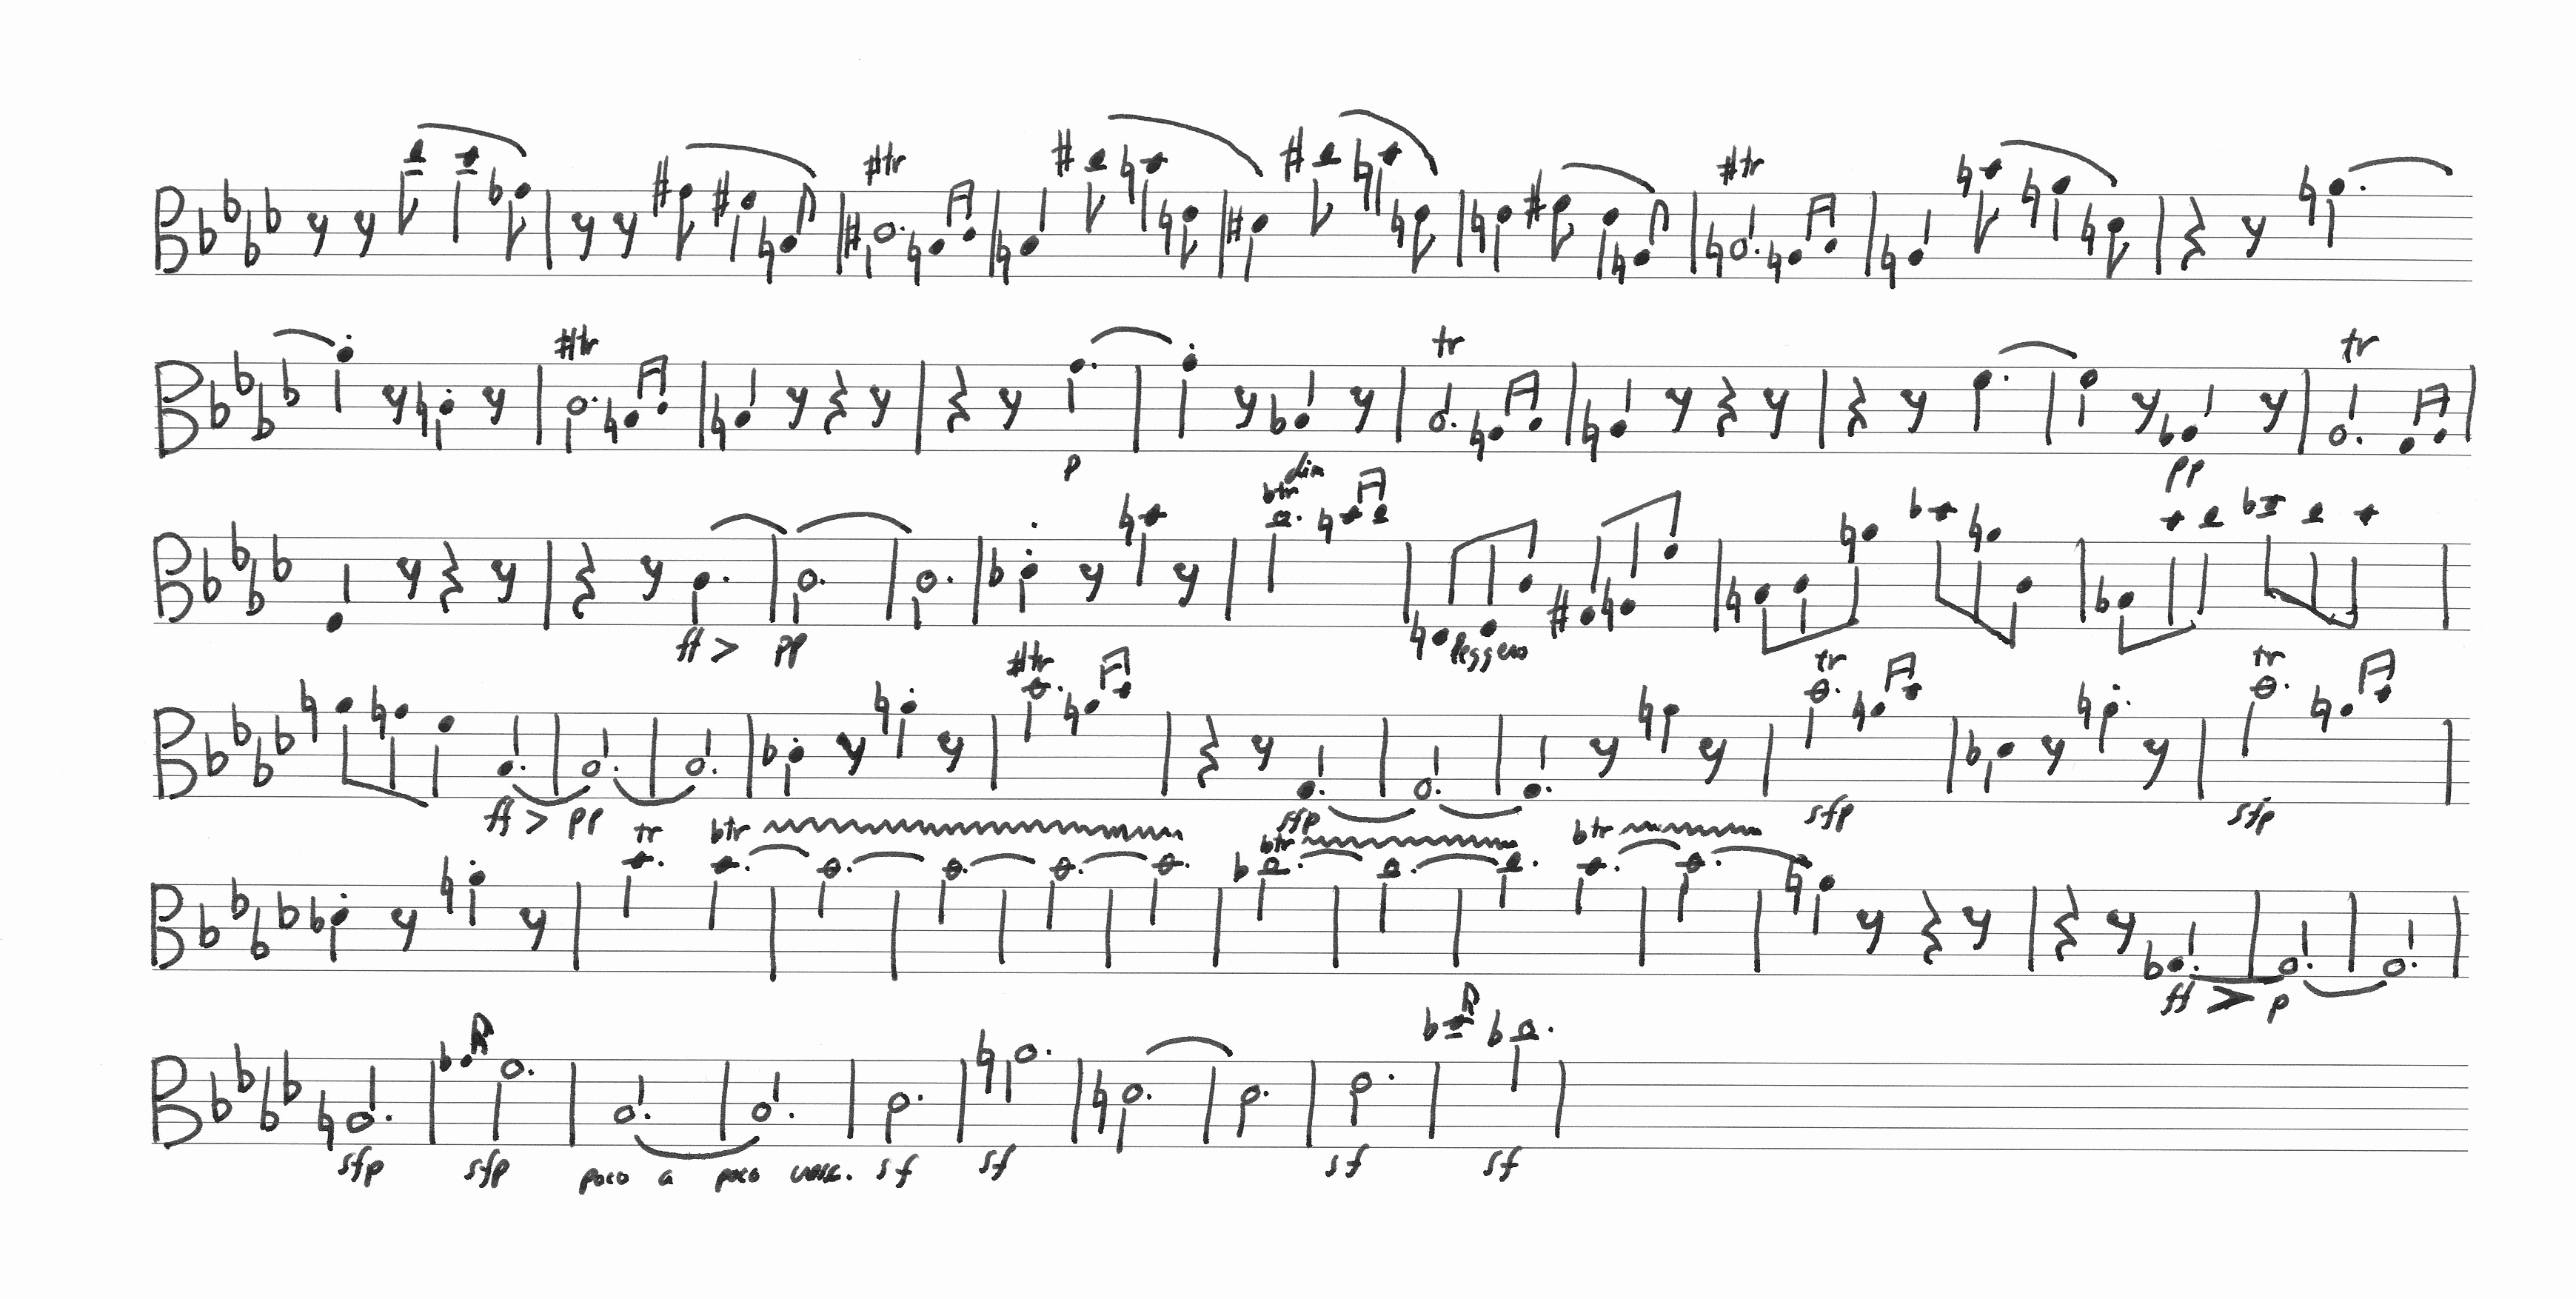 tr tr
tr tr tr
p pp
tr dim
ff pp leggero
tr tr tr
ff pp sfp sfp sfp
tr tr tr tr
ff p
sfp sfp poco a poco cresc. sf sf sf sf